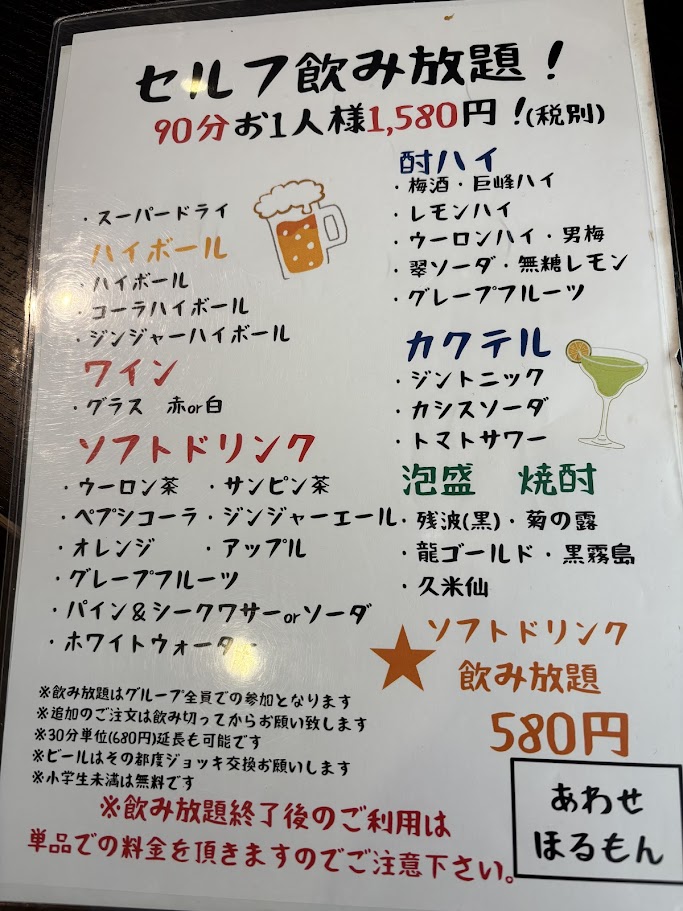 セルフ飲み放題！
90分お1人様1,580円！(税別)
・スーパードライ
ハイボール
・ハイボール
・コーラハイボール
・ジンジャーハイボール
ワイン
・グラス　赤or白
ソフトドリンク
・ウーロン茶　・サンピン茶
・ペプシコーラ・ジンジャーエール
・オレンジ　・アップル
・グレープフルーツ
・パイン＆シークワサーorソーダ
・ホワイトウォーター
酎ハイ
・梅酒・巨峰ハイ
・レモンハイ
・ウーロンハイ・男梅
・翠ソーダ・無糖レモン
・グレープフルーツ
カクテル
・ジントニック
・カシスソーダ
・トマトサワー
泡盛　焼酎
・残波(黒)・菊の露
・龍ゴールド・黒霧島
・久米仙
ソフトドリンク
飲み放題
580円
※飲み放題はグループ全員での参加となります
※追加のご注文は飲み切ってからお願い致します
※30分単位(680円)延長も可能です
※ビールはその都度ジョッキ交換お願いします
※小学生未満は無料です
※飲み放題終了後のご利用は
単品での料金を頂きますのでご注意下さい。
あわせ
ほるもん